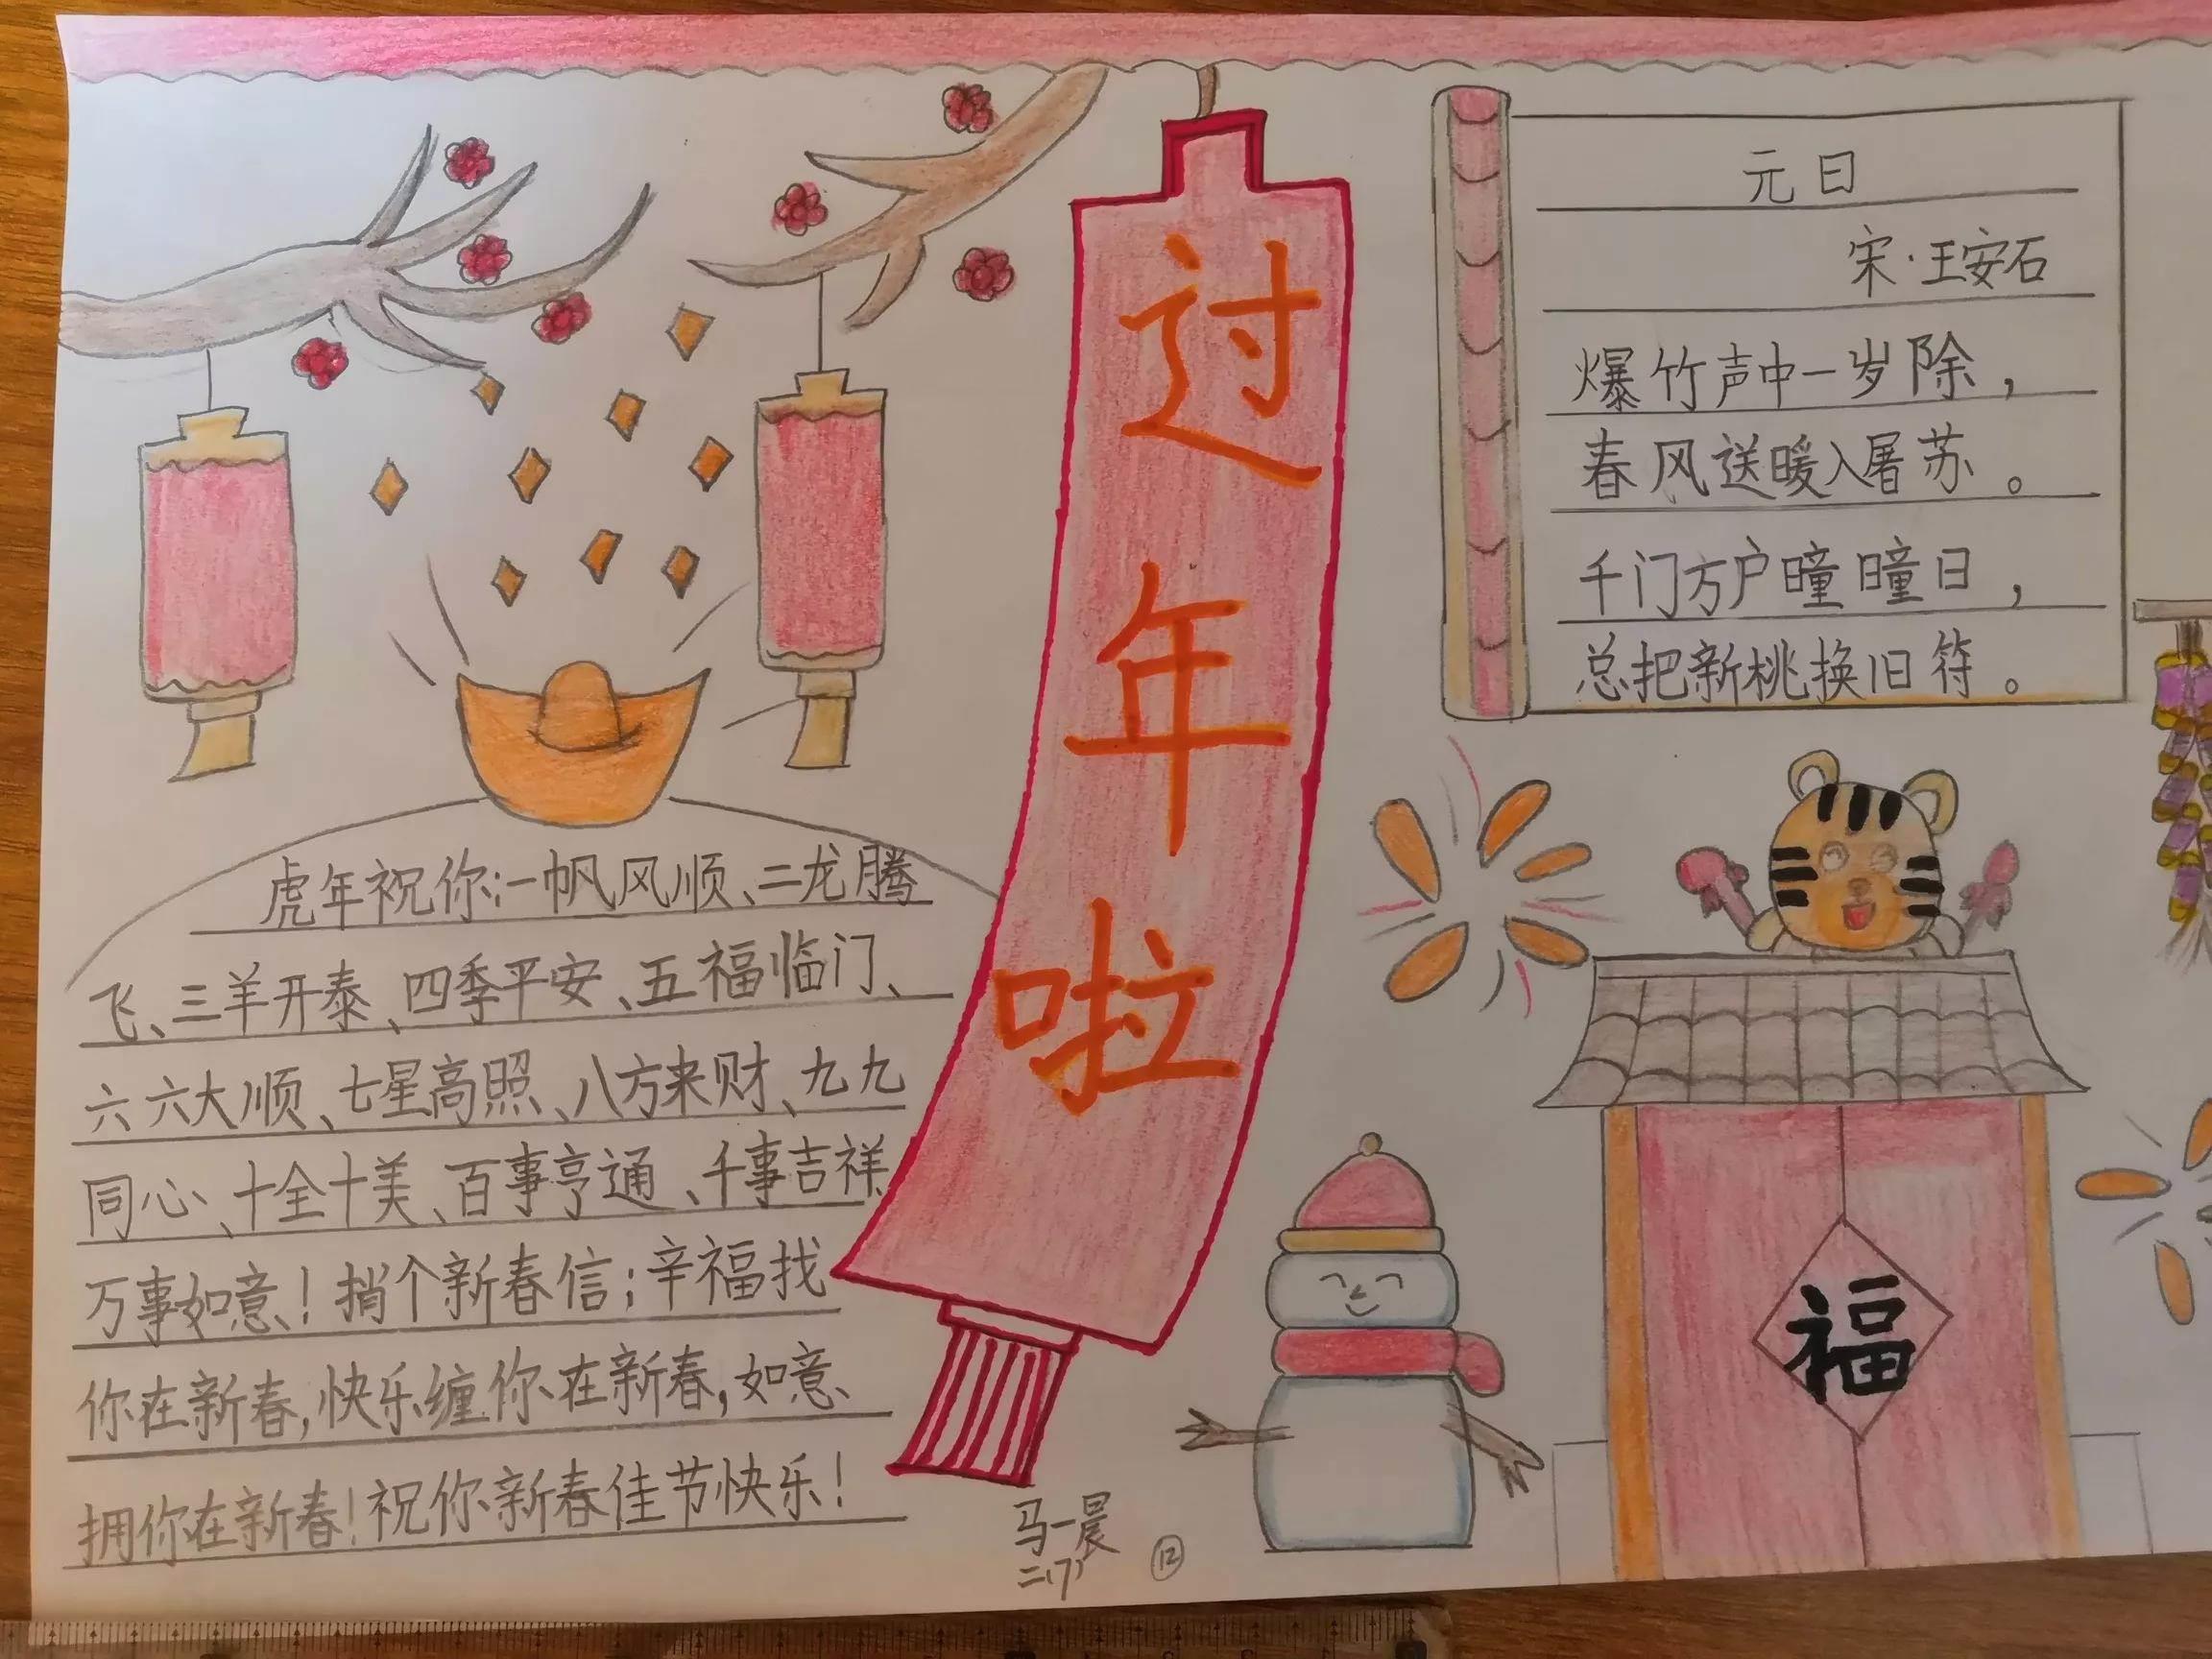 过年啦
元日
宋·王安石
爆竹声中一岁除，
春风送暖入屠苏。
千门方户曈曈日，
总把新桃换旧符。
虎年祝你:一帆风顺、二龙腾
飞、三羊开泰、四季平安、五福临门、
六六大顺、七星高照、八方来财、九九
同心、十全十美、百事亨通、千事吉祥
万事如意！捎个新春信；辛福找
你在新春，快乐缠你在新春，如意
拥你在新春！祝你新春佳节快乐！
福
马一晨
二(7)
⑫